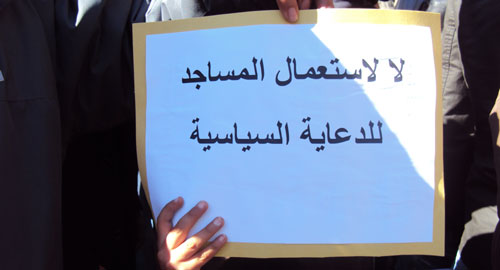 لا لاستعمال المساجد
للدعاية السياسية